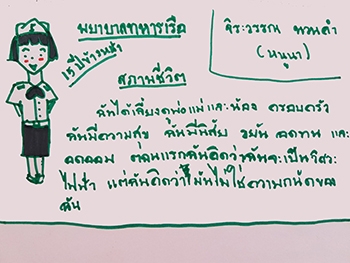 พยาบาลทหารเรือ
15 ปีข้างหน้า
จิระวรรณ ทวนดำ
(หนูนา)
สภาพชีวิต
ฉันได้เลี้ยงดูพ่อแม่และน้อง ครอบครัว
ฉันมีความสุข ฉันมีนิสัย ขยัน อดทน และ
อดออม ตอนแรกฉันคิดว่าฉันจะเป็นวิศวะ
ไฟฟ้า แต่ฉันคิดว่ามันไม่ใช่ความถนัดของ
ฉัน